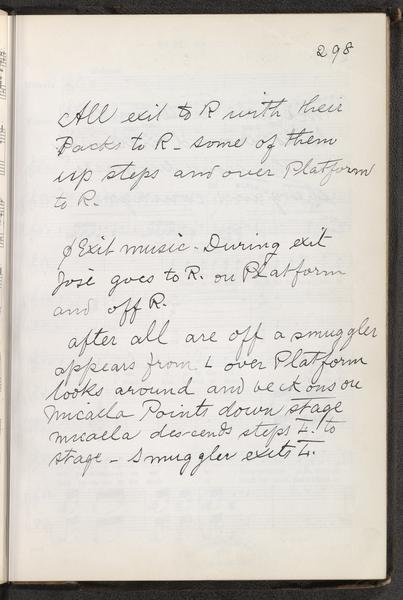 298
All exit to R with their
Packs to R - some of them
up steps and over Platform
to R.
φ Exit music - During exit
José goes to R. on Platform
and off R.
after all are off a smuggler
appears from L over Platform
looks around and beckons on
Micaela Points down stage
Micaela descends steps L. to
stage - Smuggler exits L.